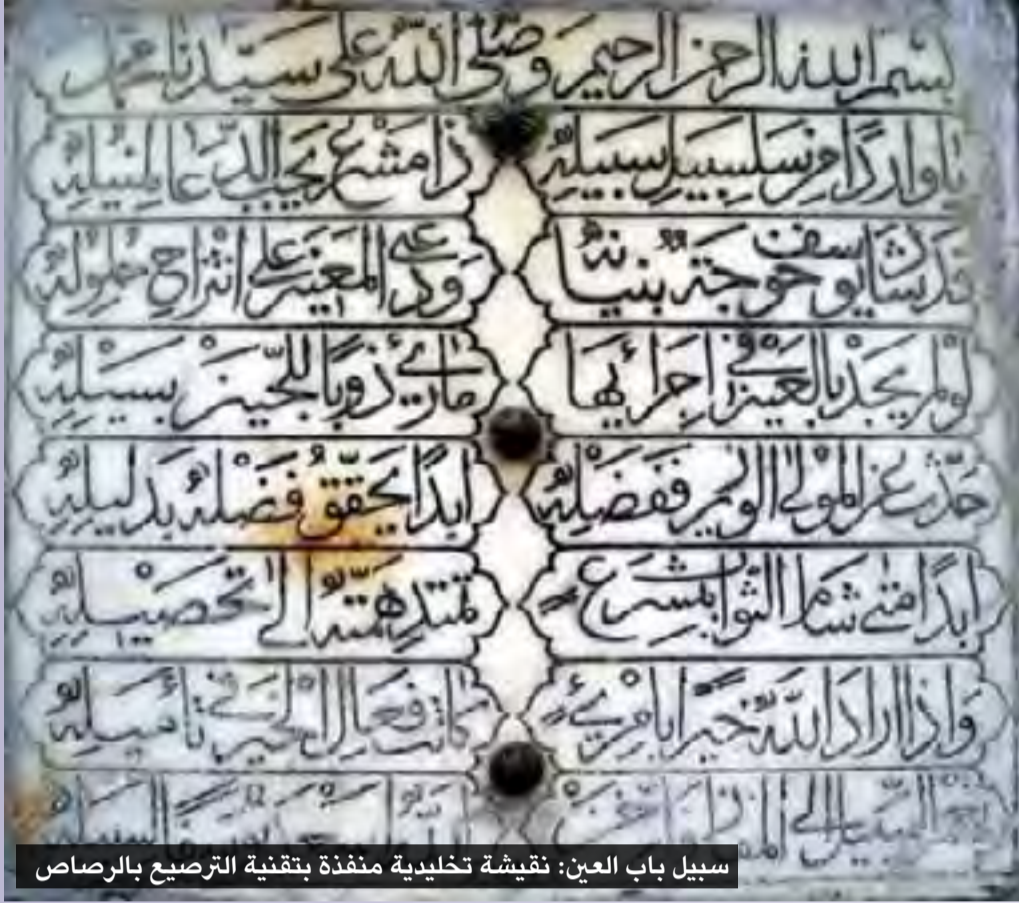 بسم الله الرحمن الرحيم وصلى الله على سيدنا محمد
يا واردًا من سلسبيل سبيله ذا مشرع يجب الدعا لمنيله
قد شاد يوسف خوجة بنيانه ودعى المعين على انتزاح حلوله
لو لم يجد بالعين في إجرائها ذوبا اللجين بسيله
حدث عن المولى الوزير ففضله ابدًا يحقق فضله بدليله
ابدًا متى شام الثواب بمشرع تمتد همته الى تحصيله
واذا اراد الله خيرا بامرئ كانت فعال الخير في تأصيله
سبيل باب العين: نقيشة تخليدية منفذة بتقنية الترصيع بالرصاص